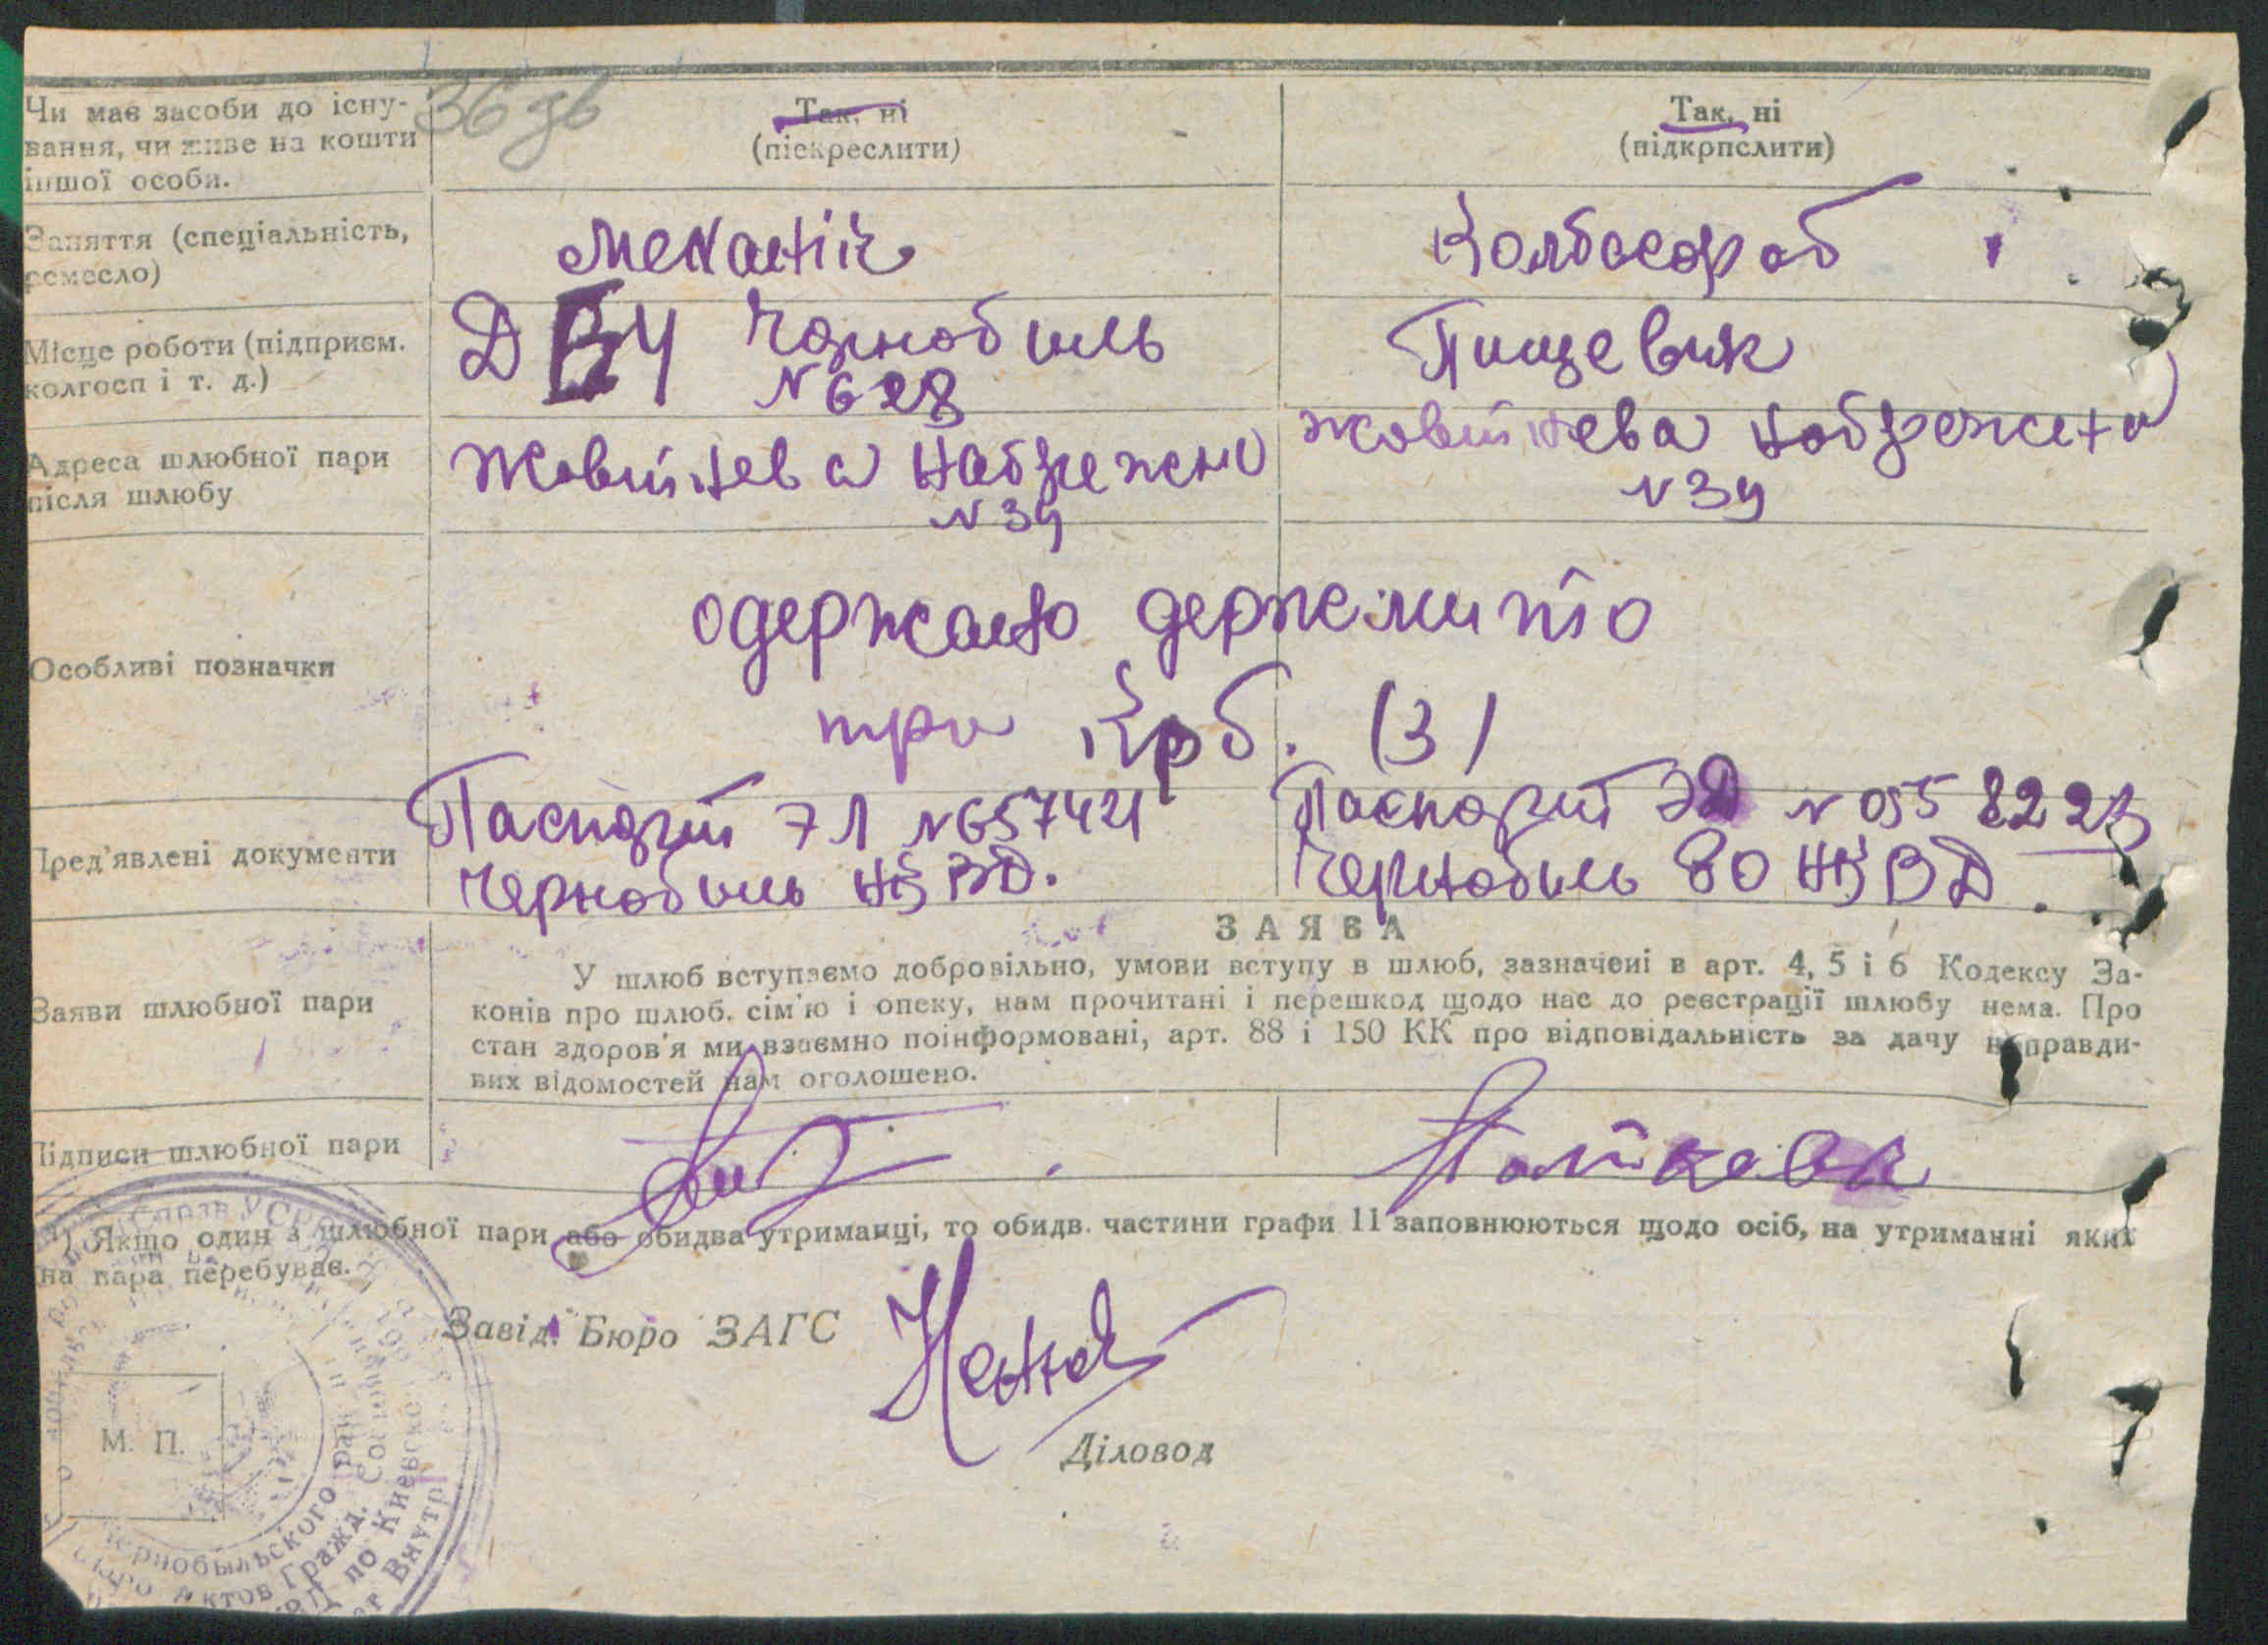 36 зв
Чи має засоби до існу-
вання, чи живе на кошти
іншої особи.
Так, ні
(піскреслити)
Так, ні
(підкрпслити)
Заняття (спеціальність,
ремесло)
механік
Колбасороб
Місце роботи (підприєм.
колгосп і т. д.)
Чорнобиль
№ 628
Пищевик
Адреса шлюбної пари
після шлюбу
Жовтнева набрежна
№ 39
Жовтнева набрежна
№ 39
Особливі позначки
одержано держмито
три крб. (3)
Пред'явлені документи
Паспорт 7Л № 657421
Чернобиль НКВД.
Паспорт № 055 8223
Чернобиль ВО НКВД.
Заяви шлюбної пари
ЗАЯВА
У шлюб вступаємо добровільно, умови вступу в шлюб, зазначені в арт. 4, 5 і 6 Кодексу За-
конів про шлюб. сім'ю і опеку, нам прочитані і перешкод щодо нас до реєстрації шлюбу нема. Про
стан здоров'я ми взаємно поінформовані, арт. 88 і 150 КК про відповідальність за дачу неправди-
вих відомостей нам оголошено.
Підписи шлюбної пари
1) Якщо один з шлюбної пари або обидва утриманці, то обидв. частини графи 11 заповнюються щодо осіб, на утриманні яких
на пара перебуває.
Завід. Бюро ЗАГС
Діловод
М. П.
Чернобыльского
Актов Гражд.
по Киевско
Внутр